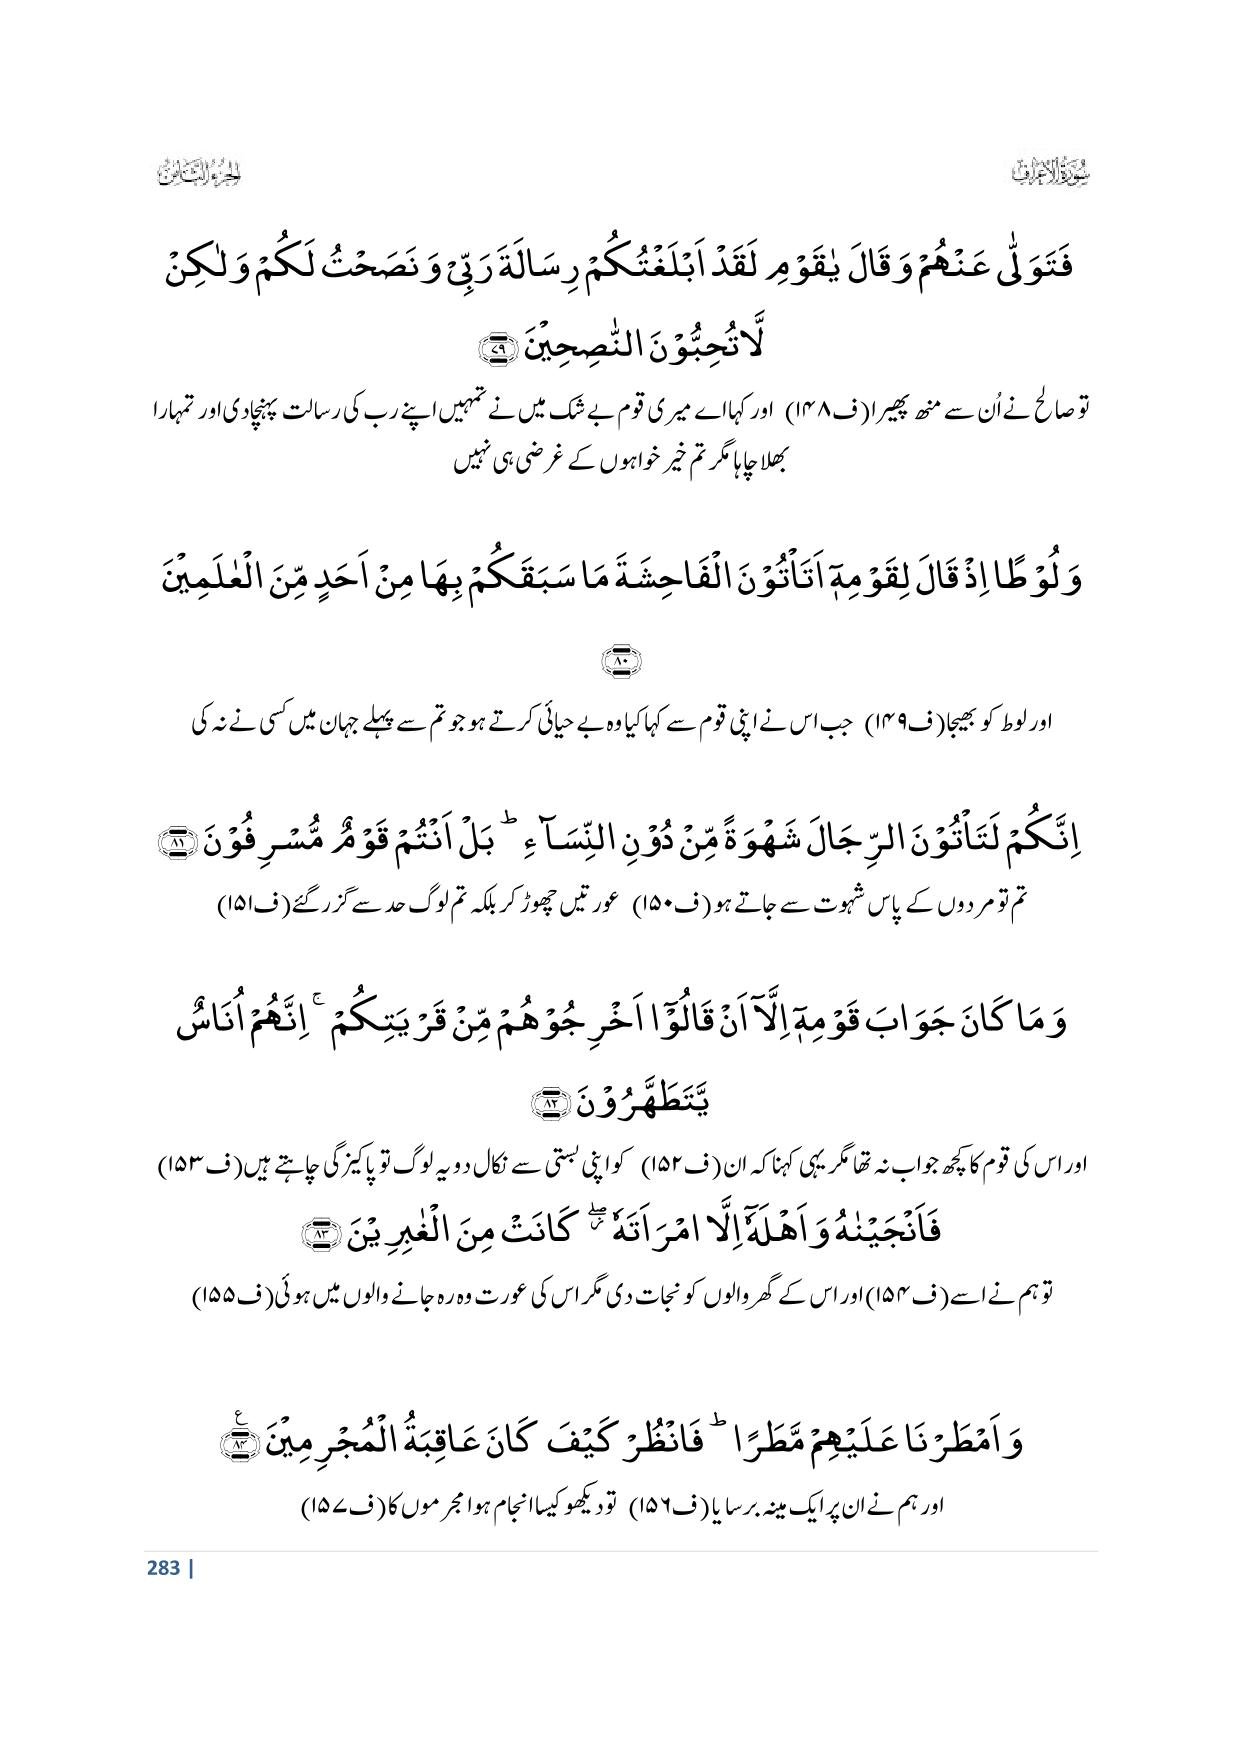 سُوْرَةُ الْاَعْرَاف
الجزء الثامن
فَتَوَلّٰى عَنْهُمْ وَ قَالَ یٰقَوْمِ لَقَدْ اَبْلَغْتُكُمْ رِسَالَةَ رَبِّیْ وَ نَصَحْتُ لَكُمْ وَ لٰكِنْ
لَّا تُحِبُّوْنَ النّٰصِحِیْنَ ﴿۷۹﴾
تو صالح نے اُن سے منھ پھیرا(ف۱۴۸) اور کہا اے میری قوم بے شک میں نے تمہیں اپنے رب کی رسالت پہنچادی اور تمہارا
بھلا چاہا مگر تم خیر خواہوں کے غرضی ہی نہیں
وَ لُوْطًا اِذْ قَالَ لِقَوْمِهٖۤ اَتَاْتُوْنَ الْفَاحِشَةَ مَا سَبَقَكُمْ بِهَا مِنْ اَحَدٍ مِّنَ الْعٰلَمِیْنَ
﴿۸۰﴾
اور لوط کو بھیجا(ف۱۴۹) جب اس نے اپنی قوم سے کہا کیا وہ بے حیائی کرتے ہو جو تم سے پہلے جہان میں کسی نے نہ کی
اِنَّكُمْ لَتَاْتُوْنَ الرِّجَالَ شَهْوَةً مِّنْ دُوْنِ النِّسَآءِ ؕ بَلْ اَنْتُمْ قَوْمٌ مُّسْرِفُوْنَ ﴿۸۱﴾
تم تو مردوں کے پاس شہوت سے جاتے ہو (ف۱۵۰) عورتیں چھوڑ کر بلکہ تم لوگ حد سے گزر گئے(ف۱۵۱)
وَ مَا كَانَ جَوَابَ قَوْمِهٖۤ اِلَّاۤ اَنْ قَالُوْۤا اَخْرِجُوْهُمْ مِّنْ قَرْیَتِكُمْ ۚ اِنَّهُمْ اُنَاسٌ
یَّتَطَهَّرُوْنَ ﴿۸۲﴾
اور اس کی قوم کا کچھ جواب نہ تھا مگر یہی کہنا کہ ان(ف۱۵۲) کو اپنی بستی سے نکال دو یہ لوگ تو پاکیزگی چاہتے ہیں(ف۱۵۳)
فَاَنْجَیْنٰهُ وَ اَهْلَهٗۤ اِلَّا امْرَاَتَهٗ ۖ٘ كَانَتْ مِنَ الْغٰبِرِیْنَ ﴿۸۳﴾
تو ہم نے اسے(ف۱۵۴)اور اس کے گھر والوں کو نجات دی مگر اس کی عورت وہ رہ جانے والوں میں ہوئی(ف۱۵۵)
وَ اَمْطَرْنَا عَلَیْهِمْ مَّطَرًا ؕ فَانْظُرْ كَیْفَ كَانَ عَاقِبَةُ الْمُجْرِمِیْنَ ﴿۸۴﴾ ع
اور ہم نے ان پر ایک مینہ برسایا(ف۱۵۶) تو دیکھو کیسا انجام ہوا مجرموں کا(ف۱۵۷)
283 |